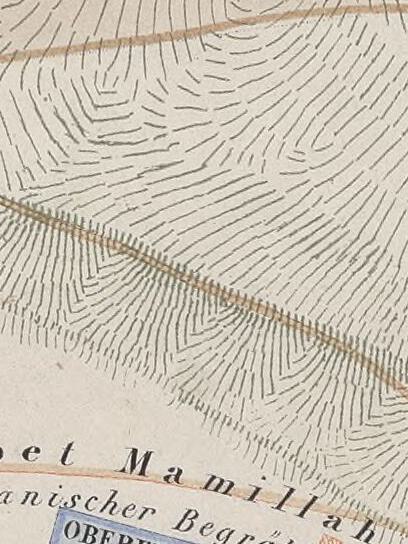 et Mamillah
anischer Begrä
OBERE